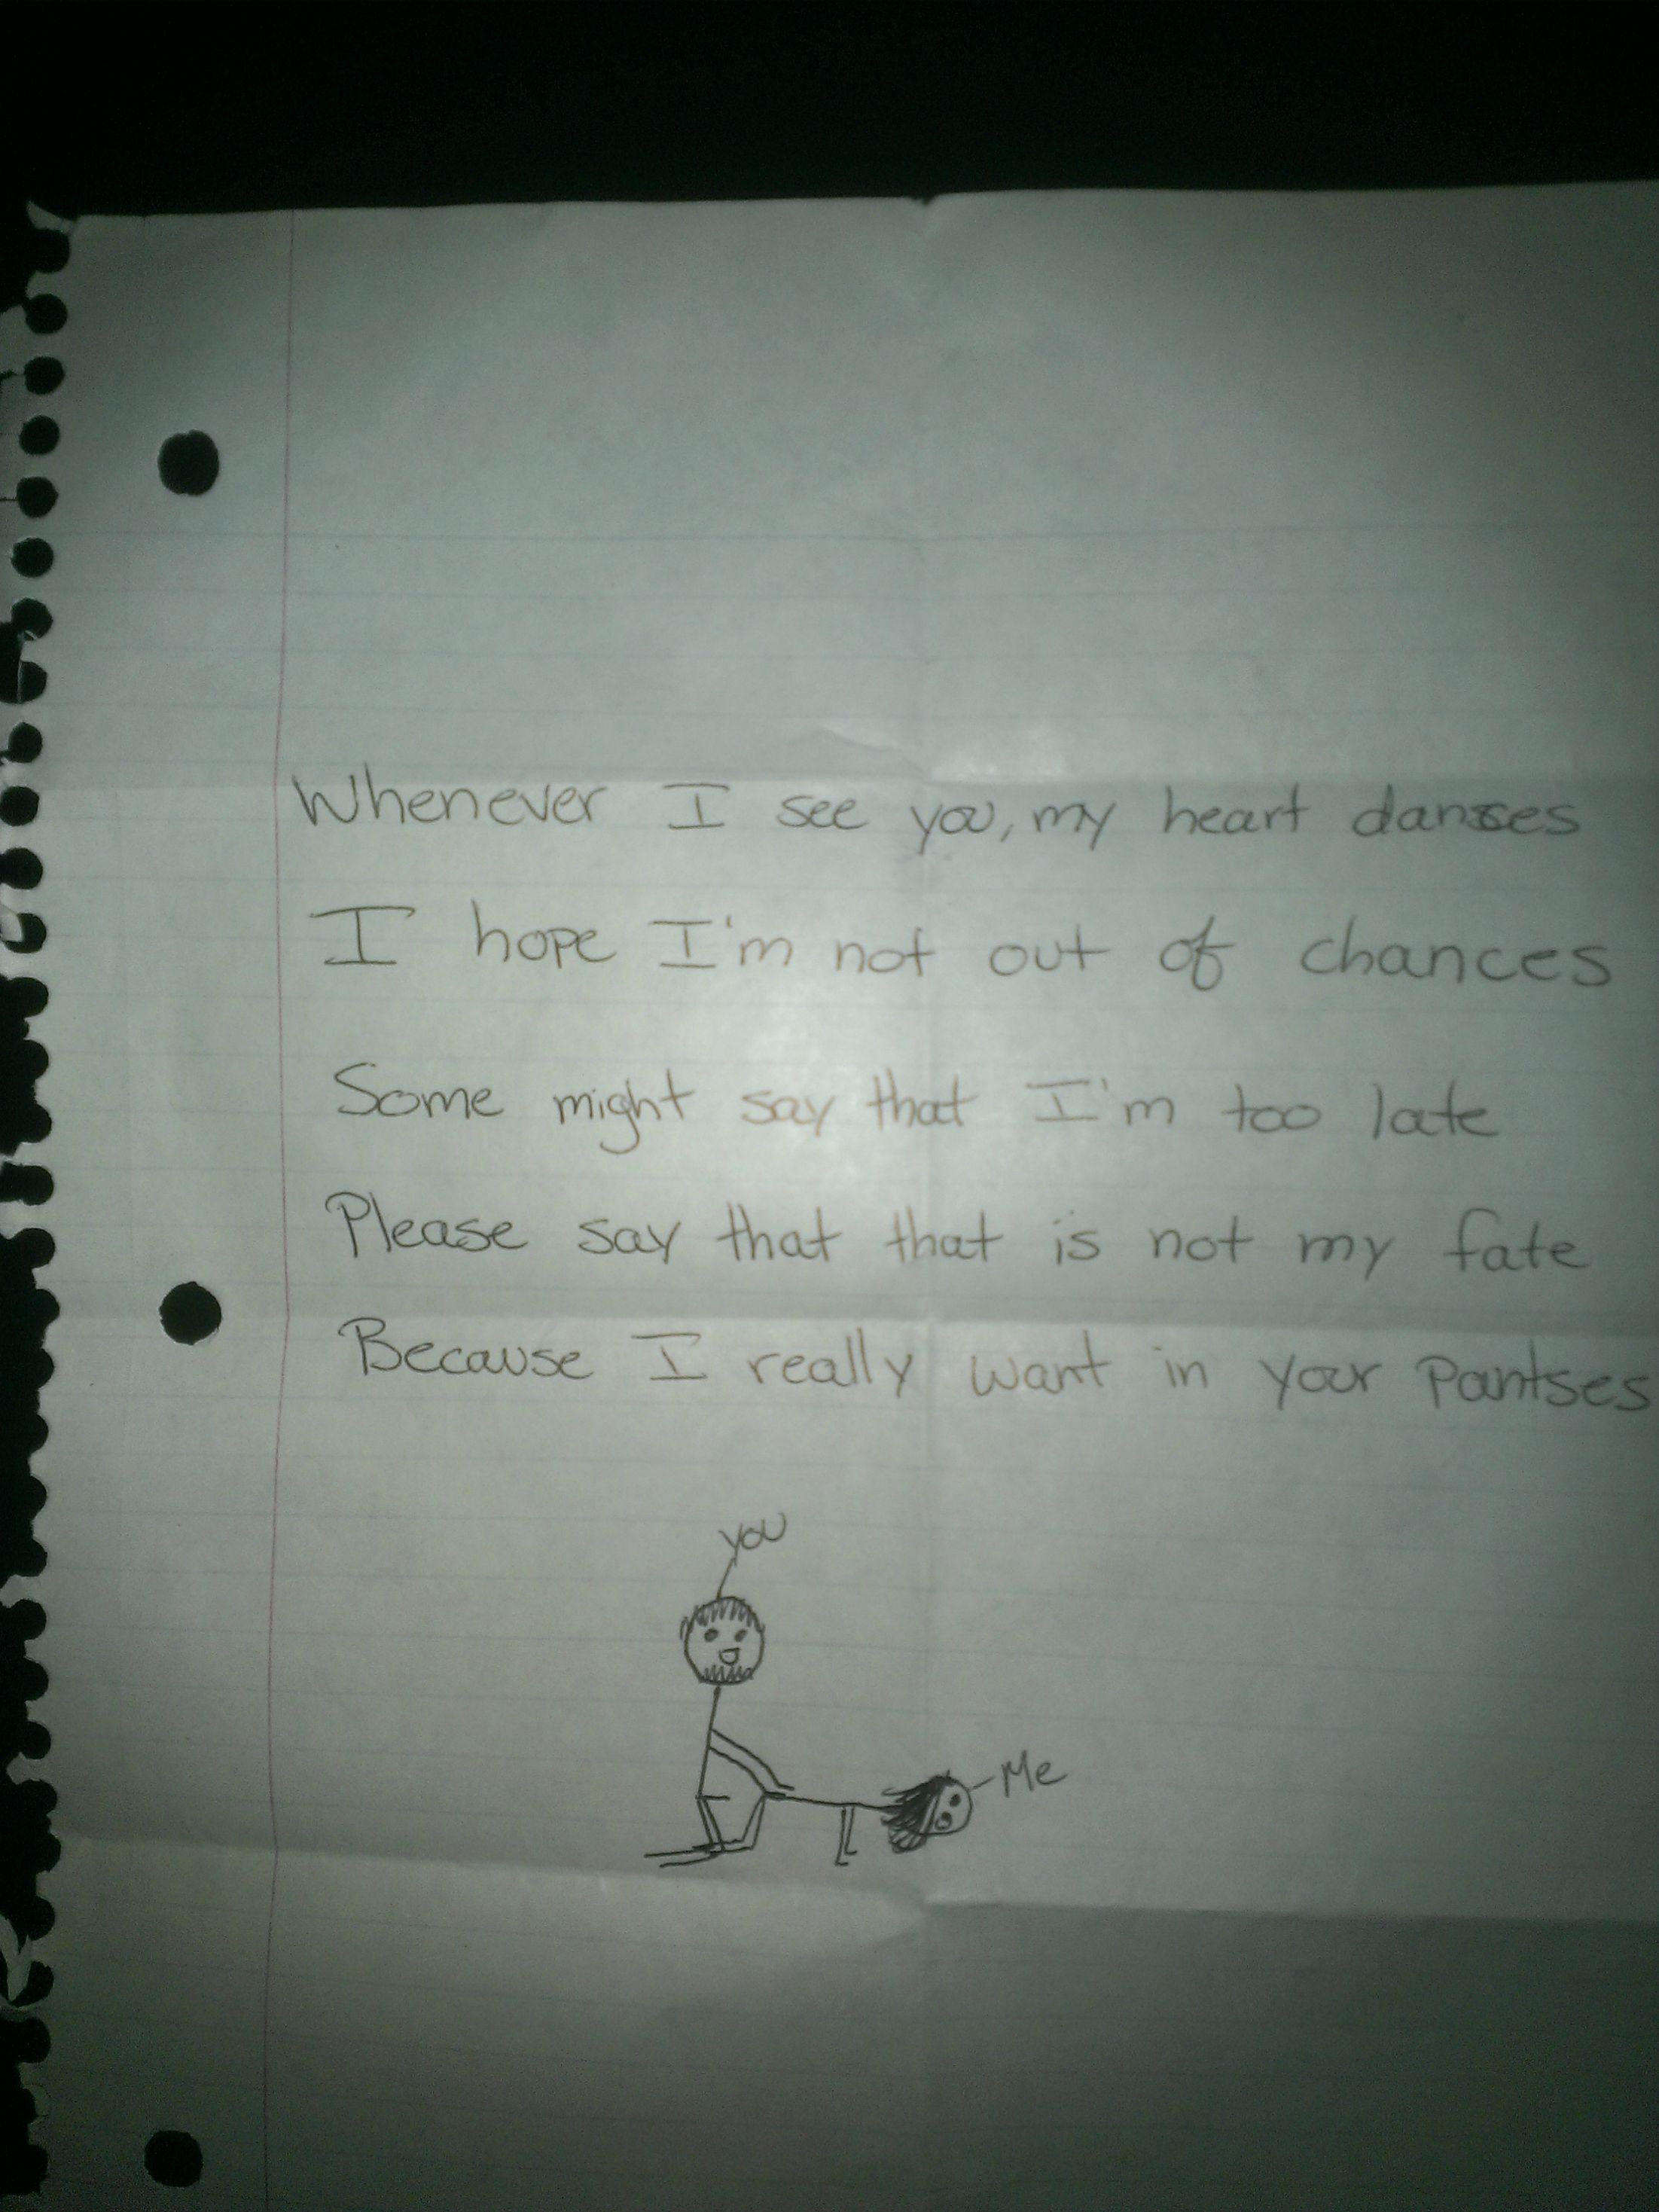 Whenever I see you, my heart danses
I hope I'm not out of chances
Some might say that I'm too late
Please say that that is not my fate
Because I really want in your pantses
you
Me